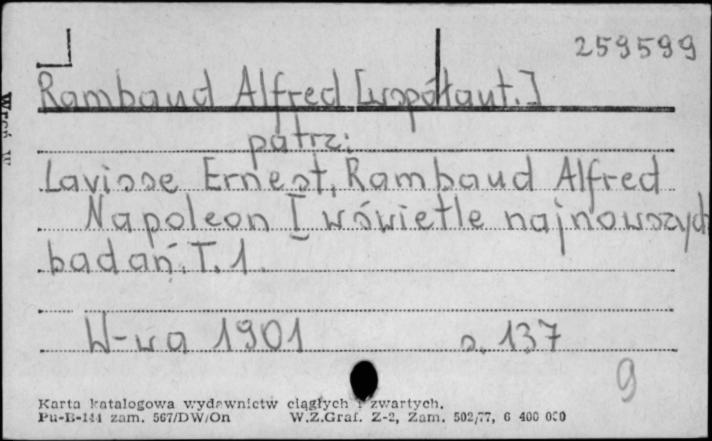 259599
Rambaud Alfred [współaut.]
patrz:
Lavisse Ernest, Rambaud Alfred
Napoleon I w świetle najnowszych
badań. T. 1.
W-wa 1901 s. 137
9
Karta katalogowa wydawnictw ciągłych i zwartych.
Pu-B-144 zam. 567/DW/On W.Z.Graf. Z-2, Zam. 502/77, 6 400 000